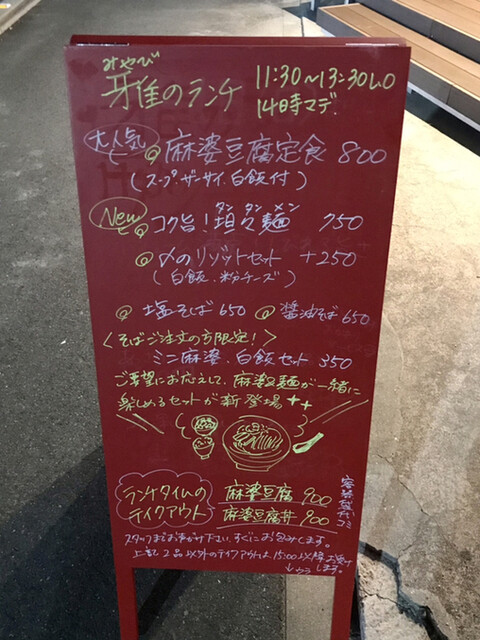 みやび
雅のランチ
11:30〜13:30 L.O
14時マデ
大人気
麻婆豆腐定食 800
(スープ.ザーサイ.白飯付)
New
コク旨!坦々麺 750
タン タン メン
〆のリゾットセット +250
(白飯.粉チーズ)
塩そば 650 醤油そば 650
<そばご注文の方限定!>
ミニ麻婆.白飯セット 350
ご要望にお応えして、麻婆&麺が一緒に
楽しめるセットが新登場
ランチタイムの
テイクアウト
麻婆豆腐 900
麻婆豆腐丼 900
コミ
スタッフまでお声がけ下さい。すぐにお包みします。
上記2品以外のテイクアウトは15:00以降
します。